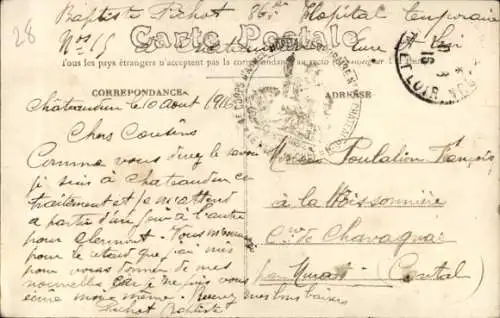 28
Baptiste Pichot 86 Hôpital temporaire
Nos 15 Chateaudun Eure et Loir
Carte Postale
Tous les pays étrangers n'acceptent pas la correspondance au recto
CORRESPONDANCE
Chateaudun le 10 Aout 1916
Chers Cousins
Comme vous devez le savoir
je suis à Chateaudun en
traitement et je m'attend
a partir d'un jour à l'autre
pour Clermont. Vous
pour le retard que j'ai mis
pour vous donner de mes
nouvelles car je ne puis vous
écrire moi même. Recevez mes bons baisers
Pichot Baptiste
ADRESSE
Monsieur Poulation François
à la Boissonnière
Cne de Chavagnac
par Murat (Cantal)